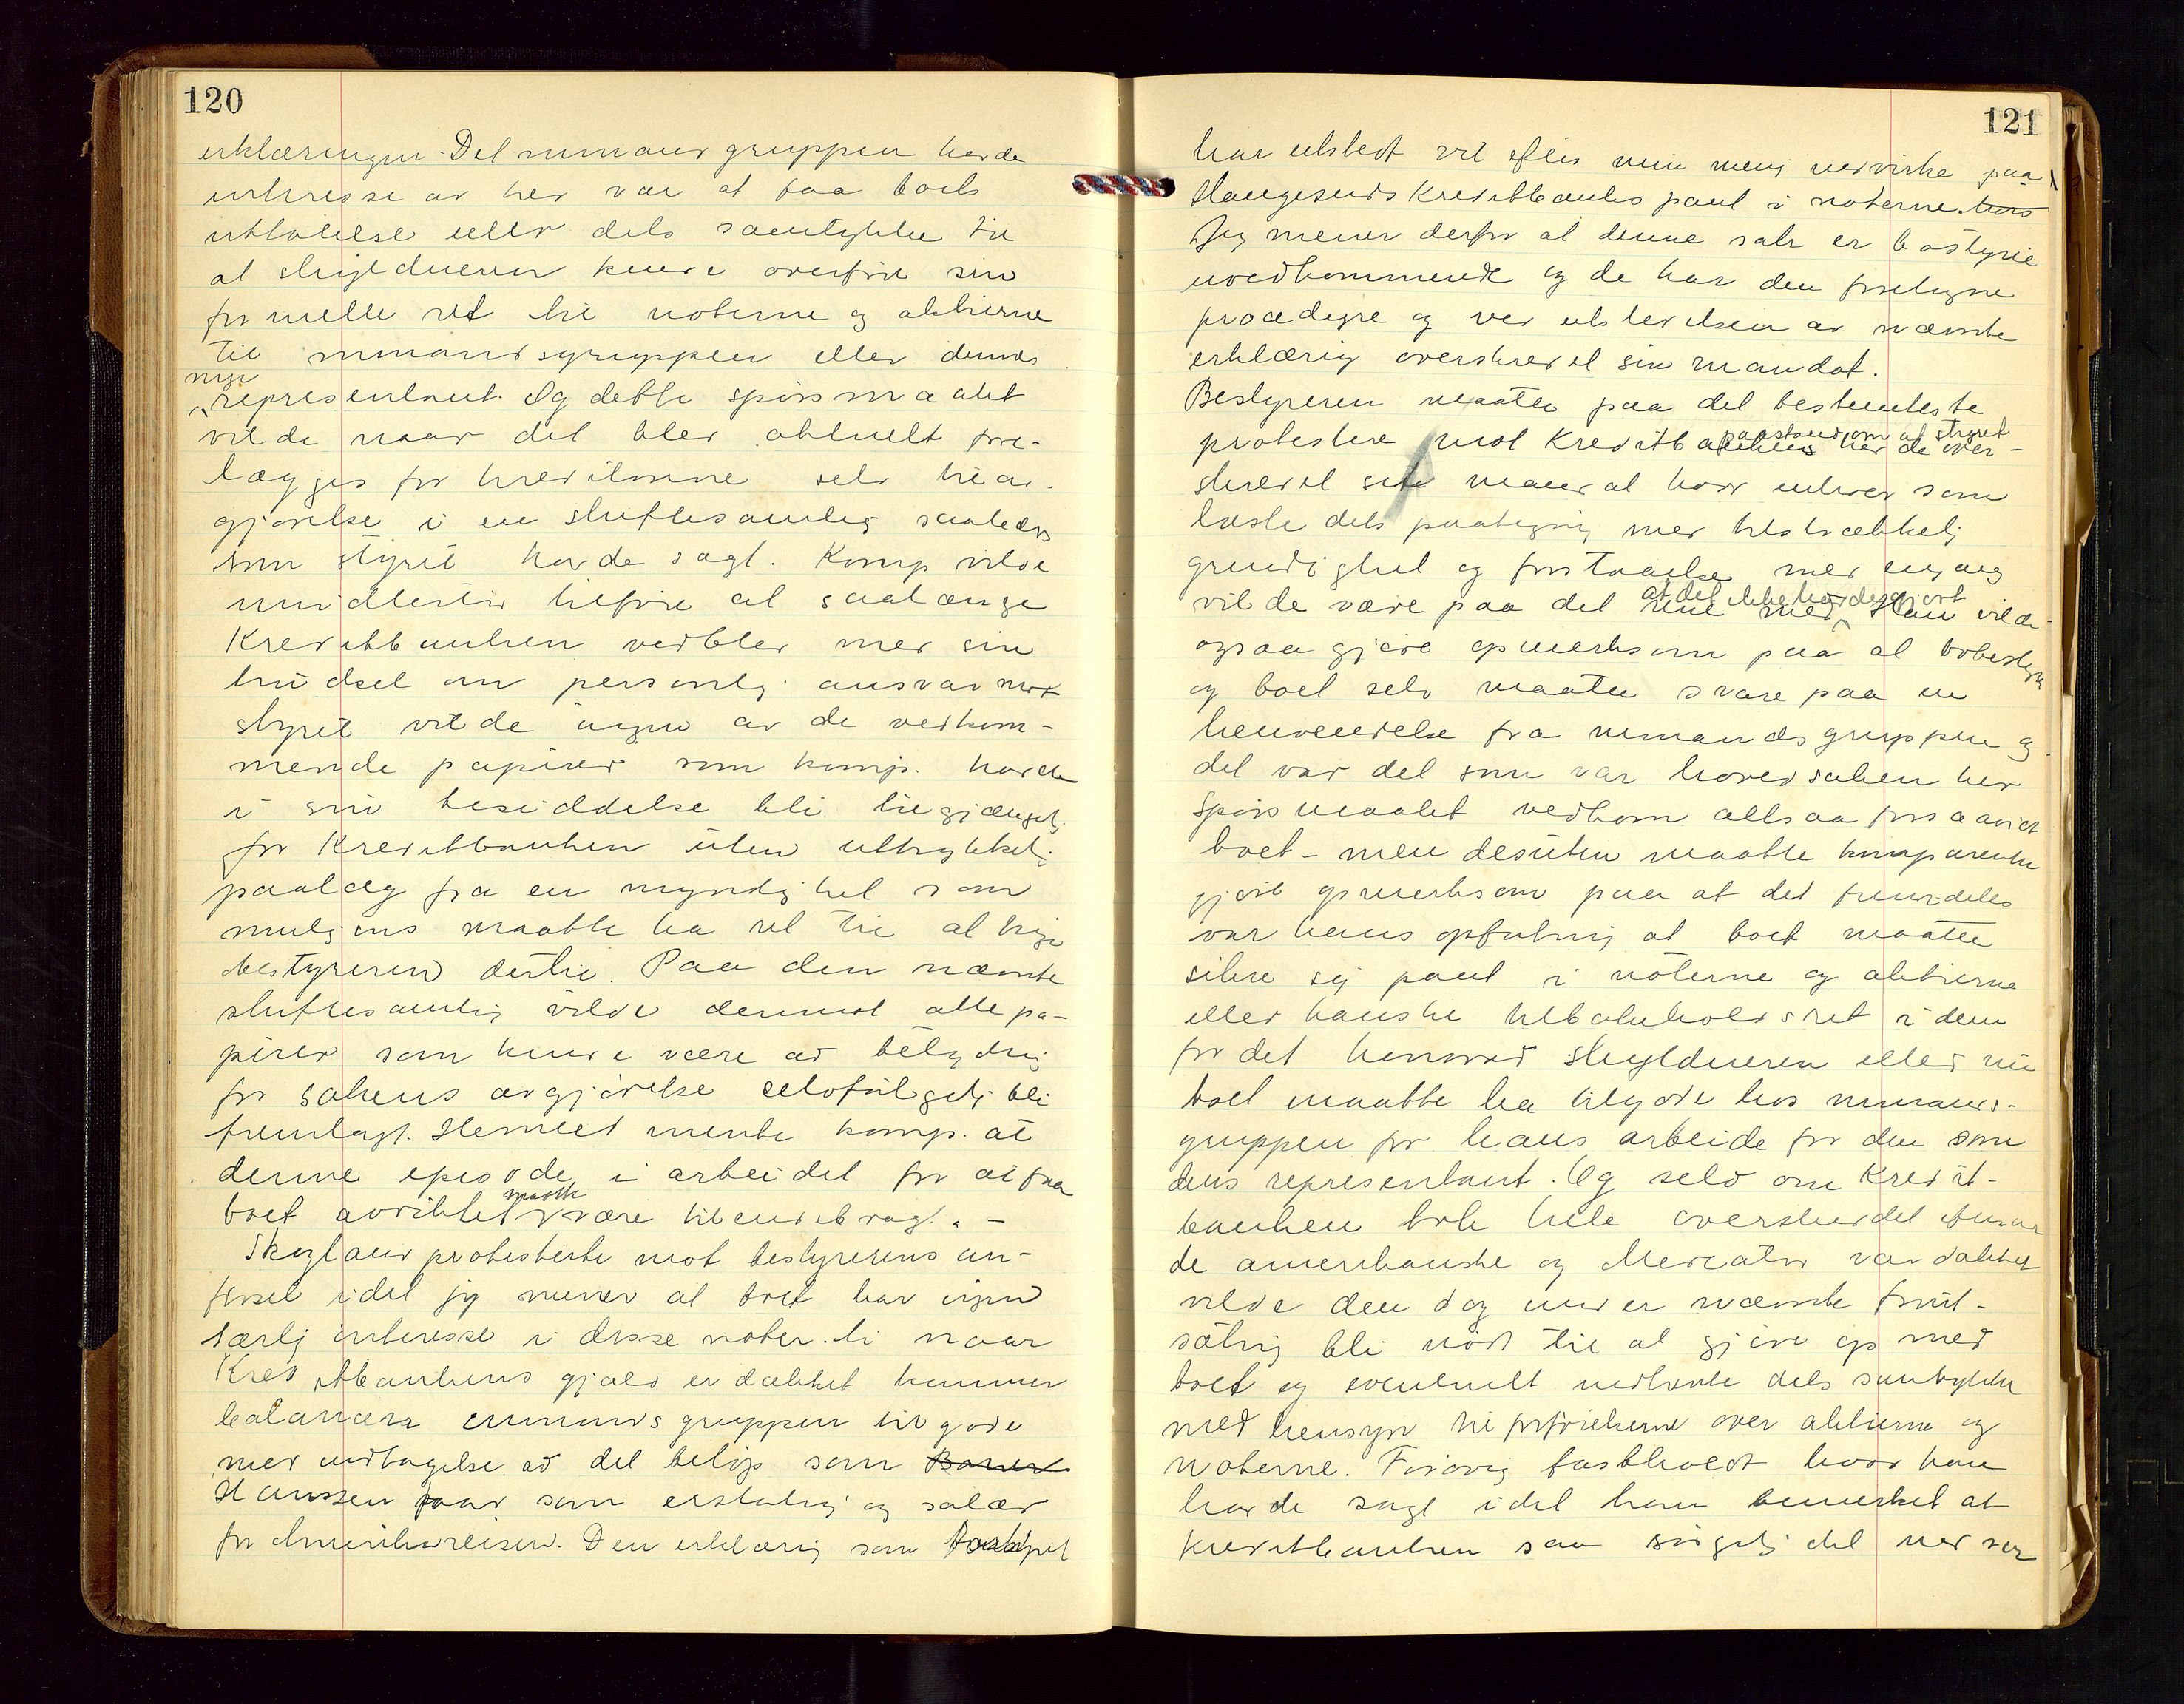 120
erklæringen. Det nmands gruppen havde
interesse av her var at faa boets
uttalelse eller dets samtykke til
at skyldneren kunde overføre sin
formelle ret til noterne og aktierne
til nmandsgruppen eller dennes
nye
representant. Og dette spørsmaalet
vilde naar det blev aktuelt fore-
lægges for kreditorerne selv til av-
gjørelse i en skiftesamling saaledes
som styret havde sagt. Komp vilde
imidlertid tilføie at saalænge
Kreditbanken vedblev med sin
trudsel om personlig ansvar mot
styret vilde ingen av de vedkom-
mende papirer som komp. havde
i sin besiddelse bli tilgjængelig
for Kreditbanken uten uttrykkelig
paalæg fra en myndighet som
muligens maatte ha ret til at
bestyreren dertil. Paa den nævnte
skiftesamling vilde derimot alle pa-
pirer som kunde være av betydning
for sakens avgjørelse selvfølgelig bli
fremlagt. Hermed mente komp. at
denne episode i arbeidet for at faa
boet avviklet maatte være tilendebragt. -
Skogland protesterte mot bestyrerens an-
førsel idet jeg mener at boet har ingen
særlig interesse i disse noter. ti naar
Kreditbankens gjæld er dækket kommer
balancen nmandsgruppen til gode
med undtagelse av det beløp som
Hanssen faar som erstatning og salær
for Amerikareisen. Den erklæring som bostyret
121
har utstedt vil efter min mening nedvirke paa
Haugesunds Kreditbanks pant i noterne.
Jeg mener derfor at denne sak er bostyret
uvedkommende og de har den foretagne
procedyre og ved utstedelsen av nævnte
erklæring overskredet sin mandat.
Bestyreren maatte paa det bestemteste
protestere mot Kreditbankens paastand om at styret havde over-
skredet sit mandat hvor enhver som
læste dets paategning med tilstrækkelig
grundighet og forstaaelse med engang
vilde være paa det rene med at det ikke havde gjort. Han vilde
ogsaa gjøre opmerksom paa at bobestyret
og boet selv maatte svare paa en
henvendelse fra nmandsgruppen og
det var det som var hovedsaken her
Spørsmaalet vedkom altsaa forsaavidt
boet - men desuten maatte komparenten
gjøre opmerksom paa at det fremdeles
var hans opfatning at boet maatte
sikre sig pant i noterne og aktierne
eller kanske tilbakeholdsret i dem
for det honorar skyldneren eller nu
boet maatte ha tilgode hos nmands-
gruppen for hans arbeide for den som
dens representant. Og selv om Kredit-
banken tok hele overskuddet efterat
de amerikanske og Mercator var dækket
vilde den dog under nævnte forut-
sætning bli nødt til at gjøre op med
boet og eventuelt indhente dets samtykke
med hensyn til forføielserne over aktierne og
noterne. Forøvrig fastholdt hvad han
havde sagt idet han bemerket at
Kreditbanken saa